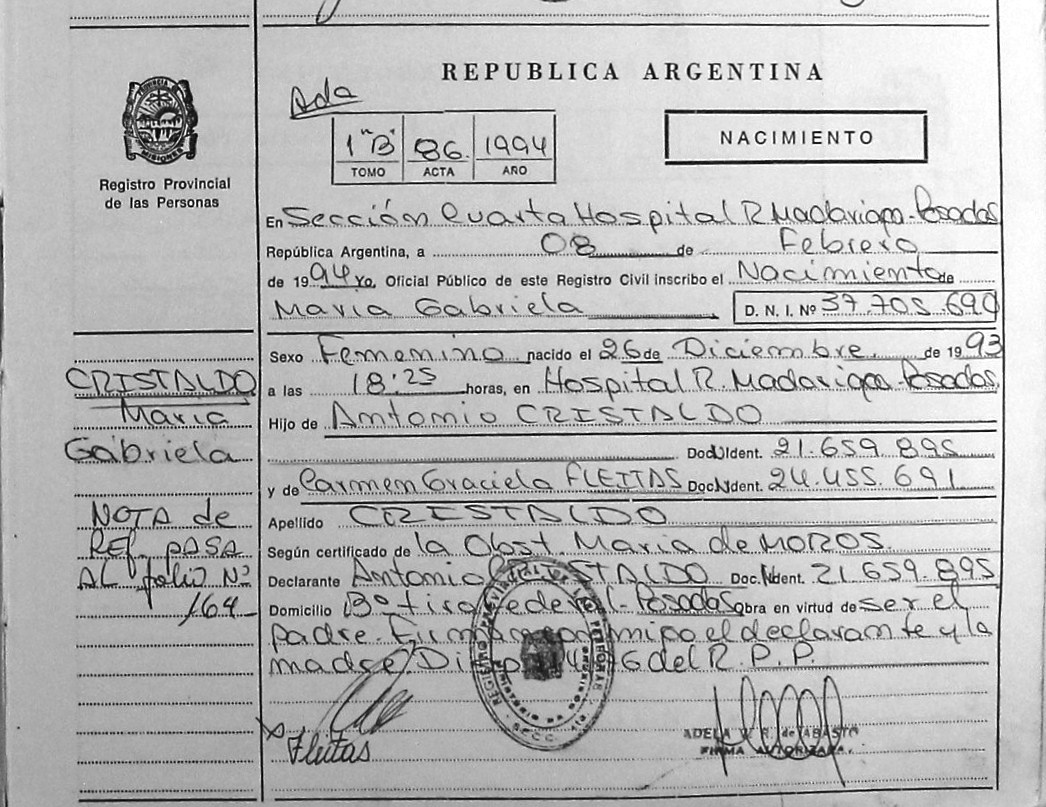 REPUBLICA ARGENTINA
Ada
PROVINCIA DE MISIONES
1 "B" 86. 1994
TOMO ACTA AÑO
NACIMIENTO
Registro Provincial
de las Personas
En Sección Cuarta Hospital R. Madariaga - Posadas
República Argentina, a 08 de Febrero
de 1994 Yo, Oficial Público de este Registro Civil inscribo el Nacimiento de
María Gabriela D. N. I. Nº 37.705.690
Sexo Femenino nacido el 26 de Diciembre de 1993
a las 18:25 horas, en Hospital R. Madariaga - Posadas
Hijo de Antonio CRISTALDO
Doc. Ident. 21.659.895
y de Carmen Graciela FLEITAS Doc. Ident. 24.455.691
Apellido CRISTALDO
Según certificado de la Obst. Maria de MOROS.
Declarante Antonio CRISTALDO Doc. Ident. 21.659.895
Domicilio Bº Federal - Posadas Obra en virtud de ser el
padre. Firman conmigo el declarante y la
madre. del R.P.P.
CRISTALDO
María
Gabriela
NOTA de
REF. PASA
AL folio Nº
164
Fleitas
ADELA de ABASTO
FIRMA AUTORIZADA